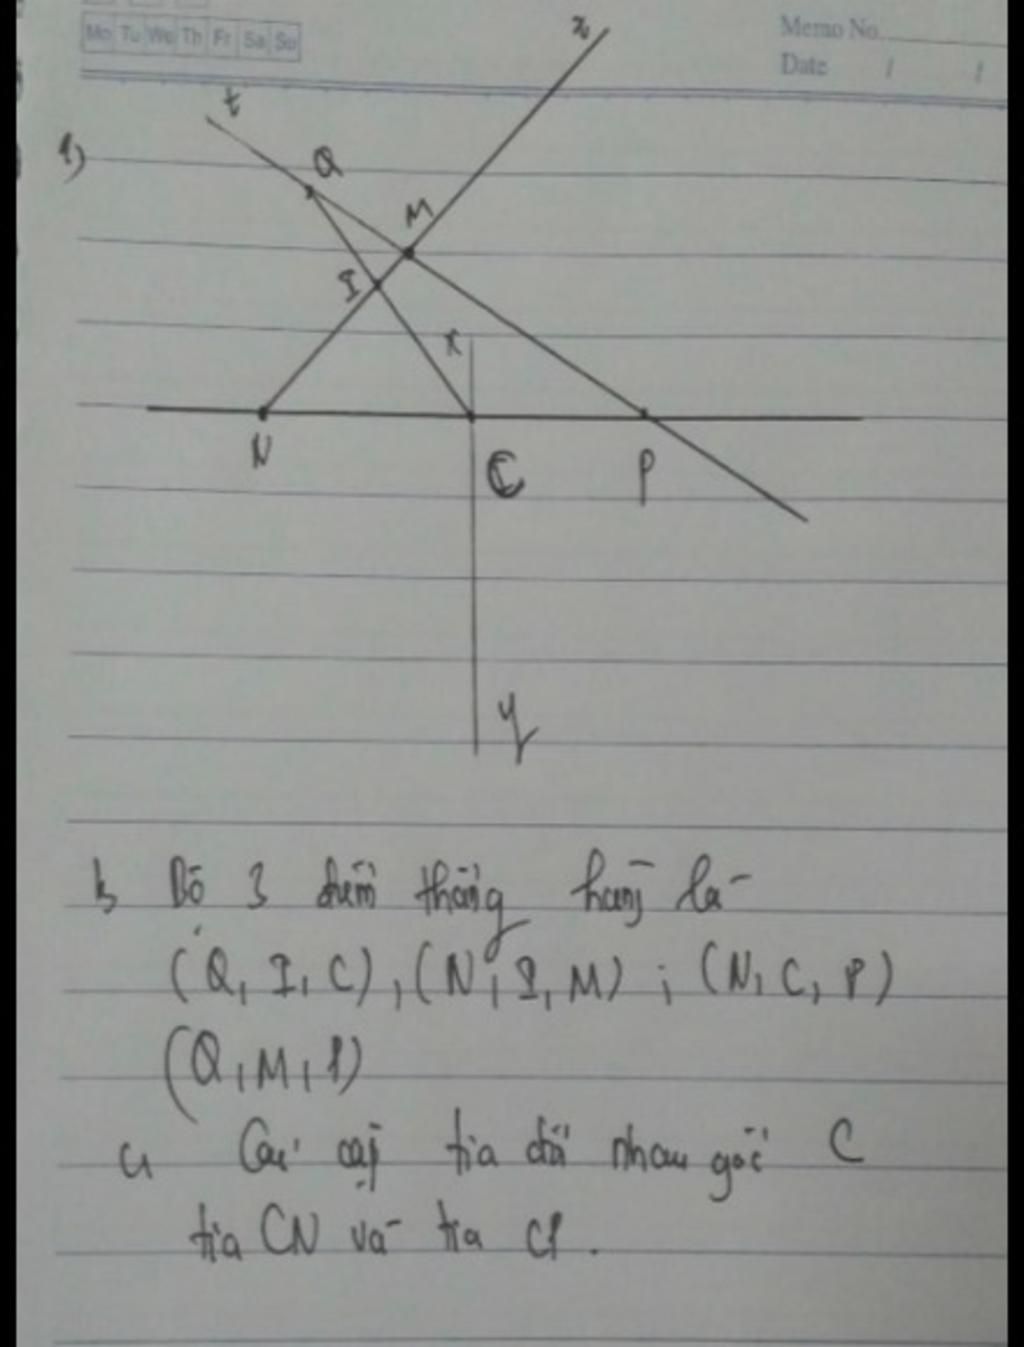 Mo Tu We Th Fr Sa Su
Memo No.
Date / /
1)
t
Q
M
I
x
N
C
P
y
b Bộ 3 điểm thẳng hàng là
(Q, I, C), (N, I, M) ; (N, C, P)
(Q, M, P)
c, Các cặp tia đối nhau gốc C
tia CN và tia CP.